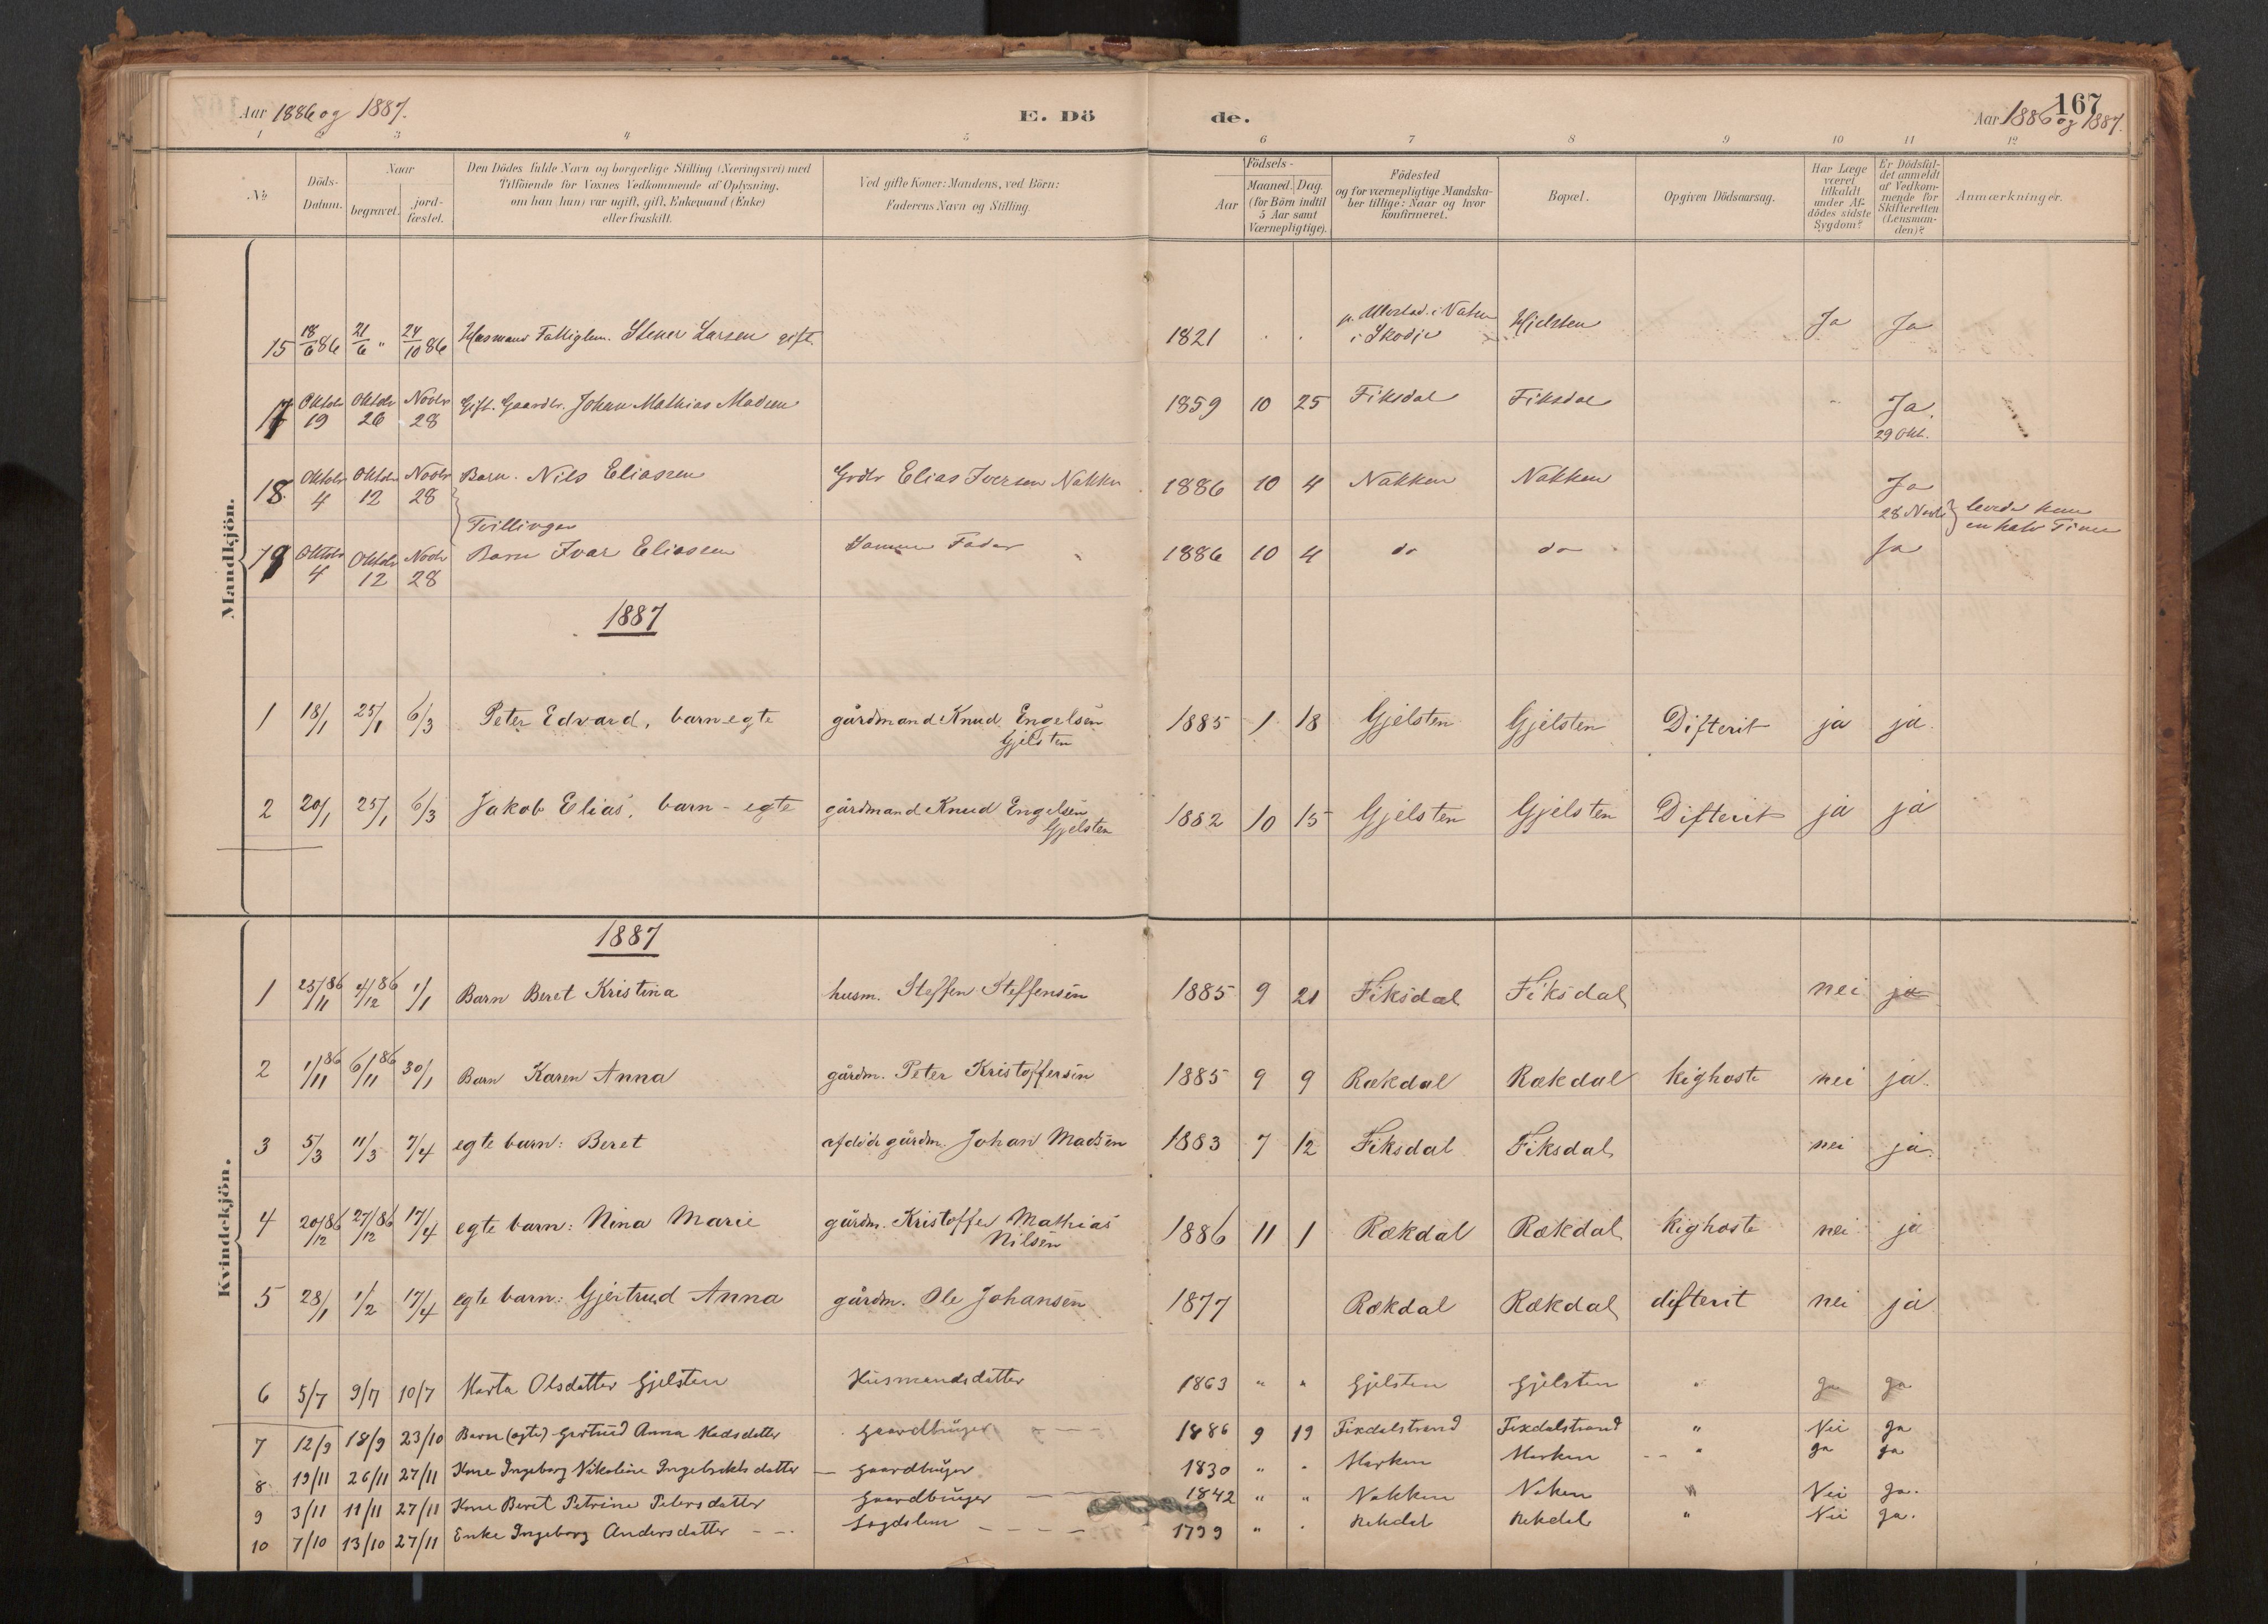 Aar 1886 og 1887. E. Dö de. Aar 1886 og 1887. 167
1 2 3 4 5 6 7 8 9 10 11 12
No
Döds-Datum.
Naar
begravet.
jord-fæstet.
Den Dödes fulde Navn og borgerlige Stilling (Næringsvei) med
Tilföiende for Voxnes Vedkommende af Oplysning,
om han (hun) var ugift, gift, Enkemand (Enke)
eller fraskilt.
Ved gifte Koner: Mandens, ved Börn:
Faderens Navn og Stilling.
Födsels-
Aar
Maaned. Dag.
(for Börn indtil
5 Aar samt
Værnepligtige).
Födested
og for værnepligtige Mandska-
ber tillige: Naar og hvor
konfirmeret.
Bopæl.
Opgiven Dödsaarsag.
Har Læge
været
tilkaldt
under Af-
dödes sidste
Sygdom?
Er Dödsfal-
det anmeldt
af Vedkom-
mende for
Skifteretten
(Lensman-
den)?
Anmærkninger.
Mandkjön.
15 18/6 86 21/6 " 24/10 86 Husmand Fattiglem. Stener Larsen gift 1821 i Skodje Hjelsten Ja Ja
17 Oktbr 19 Oktbr 26 Novbr 28 Gift. Gaardbr. Johan Mathias Madsen 1859 10 25 Fiksdal Fiksdal Ja. 29 Okt.
18 Oktbr 4 Oktbr 12 Novbr 28 Barn. Nils Eliassen Grdbr Elias Iversen Nakken 1886 10 4 Nakken Nakken Ja 28 Novbr
Tvillinger levede kun en halv Time
19 Oktbr 4 Oktbr 12 Novbr 28 Barn Ivar Eliassen Samme Fader 1886 10 4 do do Ja
1887
1 18/1 25/1 6/3 Peter Edvard, barn egte gårdmand Knud Engelsen Gjelsten 1885 1 18 Gjelsten Gjelsten Difterit ja ja.
2 20/1 25/1 6/3 Jakob Elias, barn - egte gårdmand Knud Engelsen Gjelsten 1882 10 15 Gjelsten Gjelsten Difterit ja ja
Kvindekjön.
1887
1 25/11 86 4/12 86 1/1 Barn Beret Kristina husm. Steffen Steffensen 1885 9 21 Fiksdal Fiksdal nei ja
2 1/11 86 6/11 86 30/1 Barn Karen Anna gårdm. Peter Kristoffersen 1885 9 9 Rekdal Rekdal kighoste nei ja.
3 5/3 11/3 7/4 egte barn: Beret afdöde gårdm. Johan Madsen 1883 7 12 Fiksdal Fiksdal nei ja.
4 20/12 86 27/12 86 17/4 egte barn: Nina Marie gårdm. Kristoffer Mathias Nilsen 1886 11 1 Rekdal Rekdal kighoste nei ja
5 28/1 1/2 17/4 egte barn: Gjertrud Anna gårdm. Ole Johansen 1877 Rekdal Rekdal difterit nei ja
6 5/7 9/7 10/7 Marta Olsdatter Gjelsten Husmandsdatter 1863 " " Gjelsten Gjelsten " Ja Ja
7 12/9 18/9 23/10 Barn (egte) Gertrud Anna Madsdatter Gaardbruger 1886 9 19 Fixdalstrand Fixdalstrand " Nei Ja
8 19/11 26/11 27/11 Kone Ingeborg Nikoline Ingebrektsdatter — Gaardbruger 1830 " " Marken Marken " Ja Ja
9 3/11 11/11 27/11 Kone Beret Petrine Petersdatter Gaardbruger 1842 " " Nakken Naken " Nei Ja.
10 7/10 13/10 27/11 Enke Ingeborg Andersdatter Lægdslem 1799 " " Rekdal Rekdal " Nei Ja.